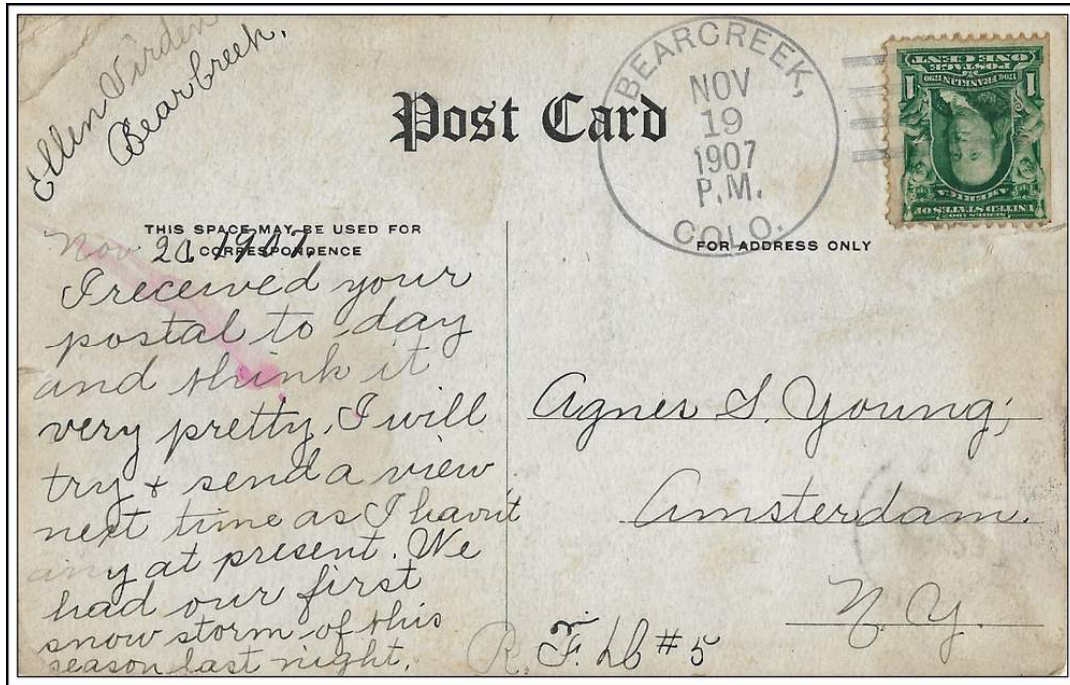 Ellen Virden
Bearcreek.
Post Card
BEARCREEK,
NOV
19
1907
P.M.
COLO.
UNITED STATES OF
AMERICA
1 1
POSTAGE
ONE CENT
THIS SPACE MAY BE USED FOR
CORRESPONDENCE
FOR ADDRESS ONLY
Nov 20 1907
I received your
postal to day
and think it
very pretty. I will
try + send a view
next time as I havn't
any at present. We
had our first
snow storm of this
season last night.
Agnes S. Young,
Amsterdam.
N. Y.
R. F. #5